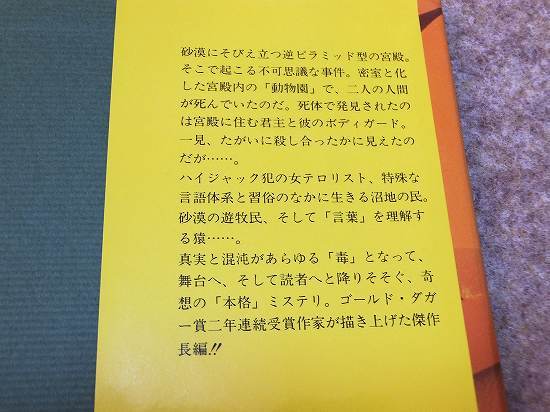 砂漠にそびえ立つ逆ピラミッド型の宮殿。
そこで起こる不可思議な事件。密室と化
した宮殿内の「動物園」で、二人の人間
が死んでいたのだ。死体で発見されたの
は宮殿に住む君主と彼のボディガード。
一見、たがいに殺し合ったかに見えたの
だが……。
ハイジャック犯の女テロリスト、特殊な
言語体系と習俗のなかに生きる沼地の民。
砂漠の遊牧民、そして「言葉」を理解す
る猿……。
真実と混沌があらゆる「毒」となって、
舞台へ、そして読者へと降りそそぐ、奇
想の「本格」ミステリ。ゴールド・ダガ
ー賞二年連続受賞作家が描き上げた傑作
長編!!